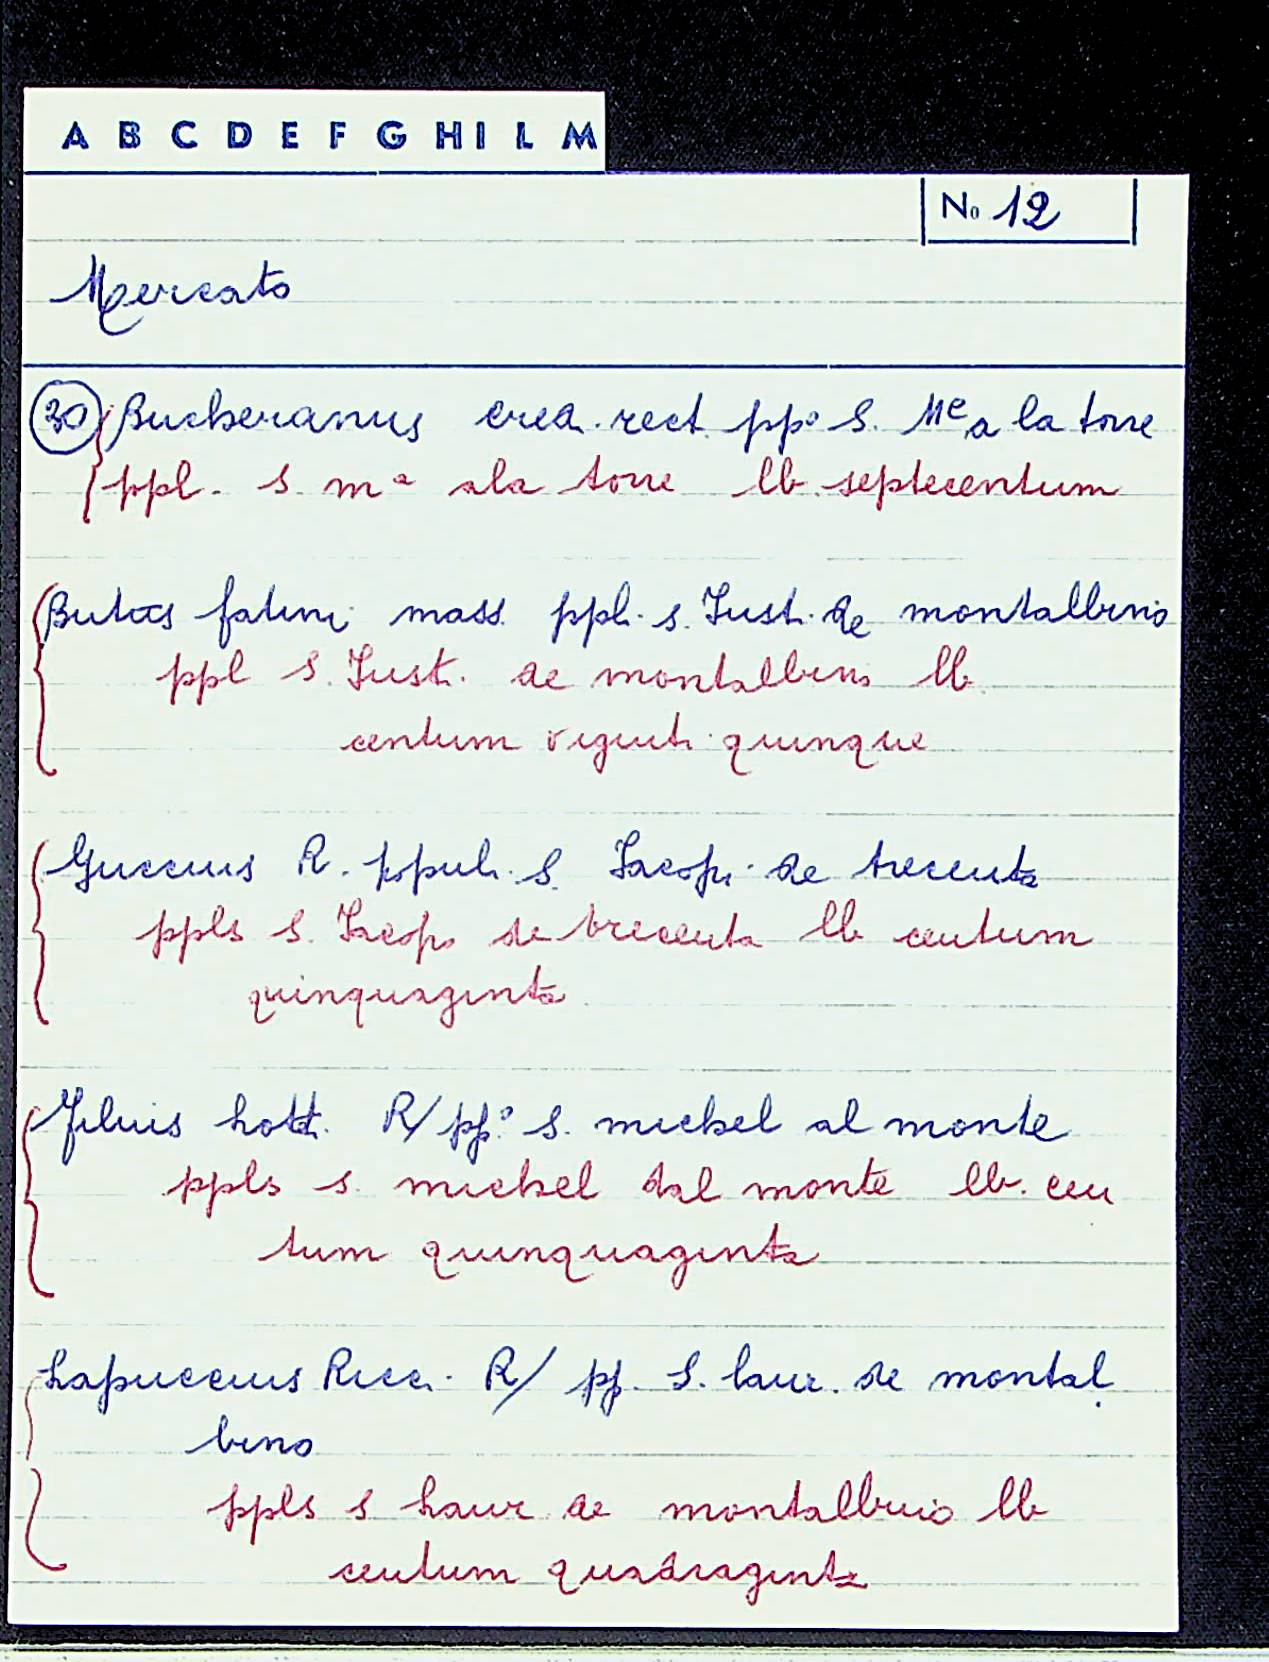 A B C D E F G H I L M
No 12
Mercato
30 Buckeranus crea. rect. pp.o S. Me a la torre
ppl. S. ma ala torre lb. septecentum
Butas fatini mass. ppl. s. Just. de montalbino
ppl S. Just. de montalbino lb
centum viginti quinque
Guccius R. popul. S. Jacopi. de trecenta
ppls S. Jacopi de trecenta lb centum
quinquaginta
hott. R/ pp.o S. mickel al monte
ppls s. mickel dal monte lb. cen
tum quinquaginta
Lapuccius Ricc. R/ pp. S. laur. de montal
bino
ppls s Laur de montalbino lb
centum quadraginta